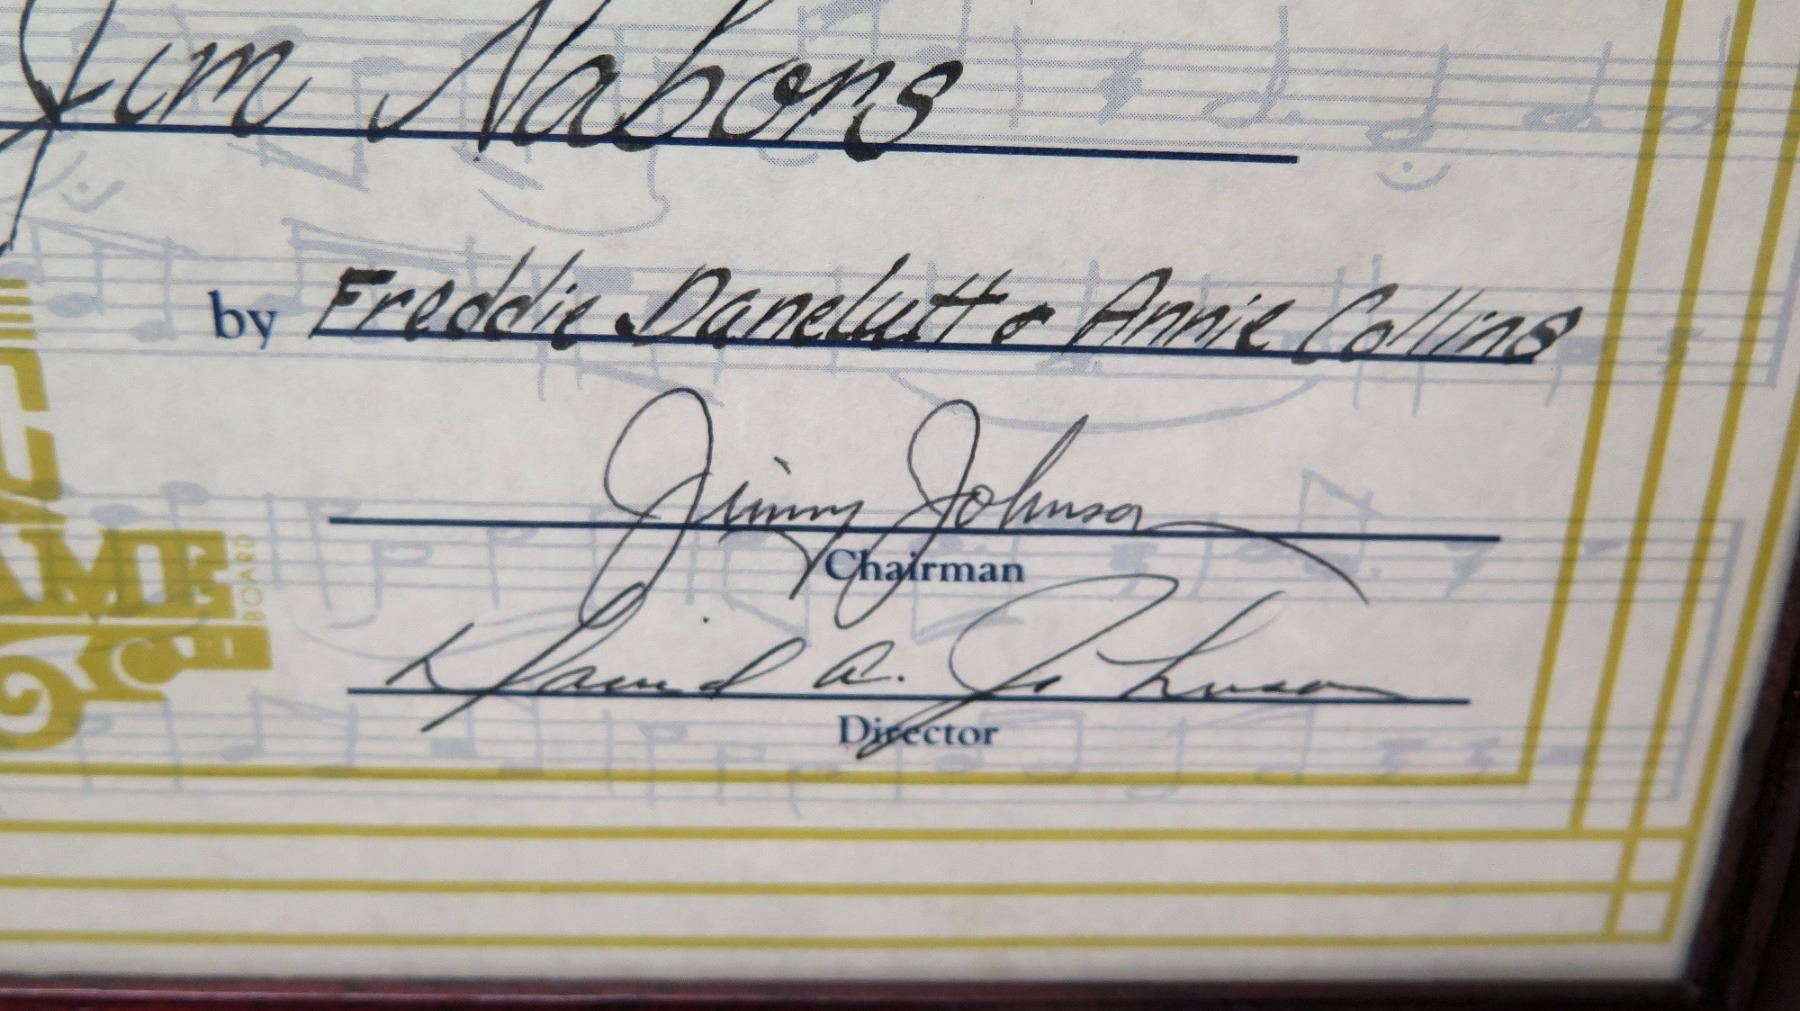 Jim Nabors
by Freddie Danelutt & Annie Collins
Jimmy Johnson
Chairman
David A. Johnson
Director
AME
BOARD